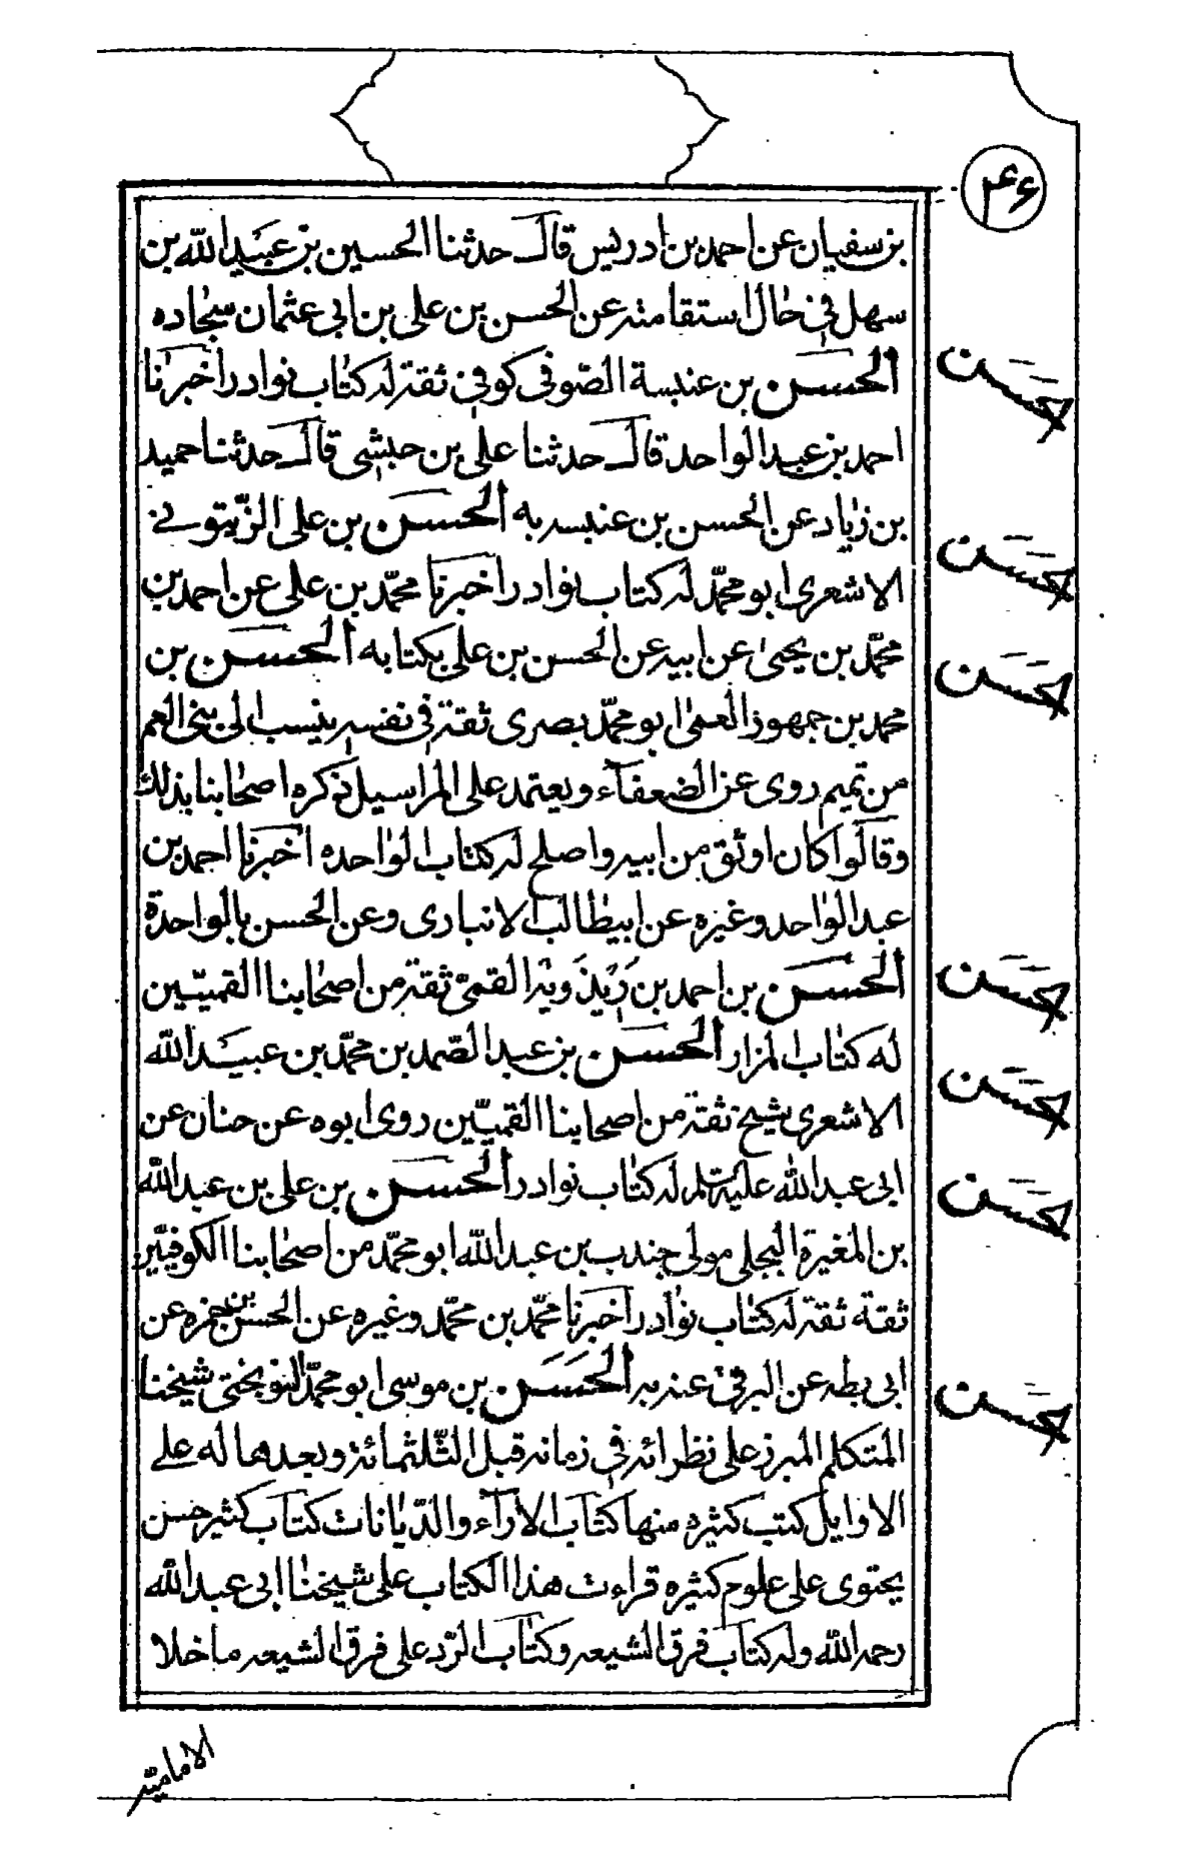 ۴۶
بن سفيان عن احمد بن ادريس قال حدثنا الحسين بن عبيد الله بن
سهل في حال استقامته عن الحسن بن علي بن ابي عثمان سجاده
الحسن بن عنبسة الصّوفي كوفي ثقة له كتاب نوادر اخبرنا
احمد بن عبد الواحد قال حدثنا علي بن حبشي قال حدثنا حميد
بن زياد عن الحسن بن عنبسه به الحسن بن علي الزّيتوني
الاشعري ابو محمّد له كتاب نوادر اخبرنا محمّد بن علي عن احمد بن
محمّد بن يحيى عن ابيه عن الحسن بن علي بكتابه الحسن بن
محمد بن جمهور العمى ابو محمّد بصرى ثقة في نفسه ينسب الى بني العم
من تميم روى عن الضعفآء ويعتمد على المراسيل ذكره اصحابنا بذلك
وقالوا كان اوثق من ابيه واصلح له كتاب الواحده اخبرنا احمد بن
عبد الواحد وغيره عن ابيطالب الانبارى وعن الحسن بالواحدة
الحسن بن احمد بن رَيْذَوَيْه القمىّ ثقة من اصحابنا القميّين
له كتاب المزار الحسن بن عبد الصّمد بن محمّد بن عبيد الله
الاشعرى شيخ ثقة من اصحابنا القميّين روى ابوه عن حنان عن
ابي عبد الله عليه السّلم له كتاب نوادر الحسن بن علي بن عبد الله
بن المغيرة البجلي مولى جندب بن عبد الله ابو محمّد من اصحابنا الكوفيّين
ثقة ثقة له كتاب نوادر اخبرنا محمّد بن محمّد وغيره عن الحسن بن حمزه عن
ابي بطه عن البرقى عنه به الحسن بن موسى ابو محمّد النوبختى شيخنا
المتكلم المبرز على نظرائه في زمانه قبل الثّلثمائة وبعدها له على
الاوايل كتب كثيره منها كتاب الآرآء والدّيانات كتاب كثير حسن
يحتوى على علوم كثيره قراءت هذا الكتاب على شيخنا ابي عبد الله
رحمه الله وله كتاب فرق الشيعه وكتاب الرّد على فرق الشيعه ما خلا
الاماميّه
حسن
حسن
حسن
حسن
حسن
حسن
حسن